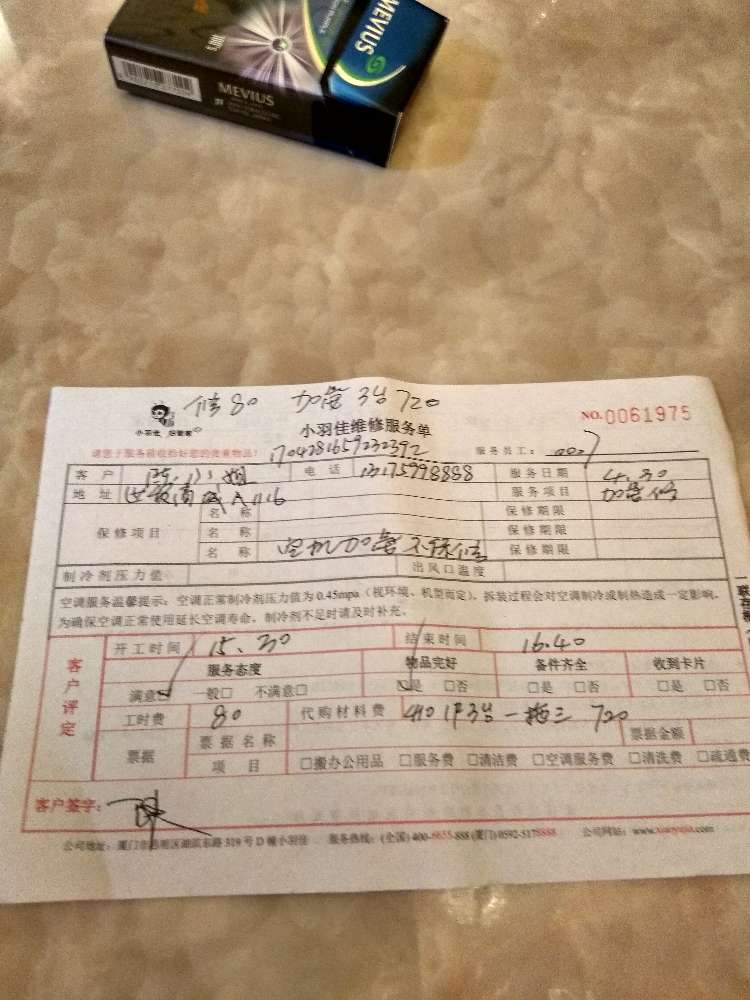 MEVIUS
100's
MEVIUS
修80 加氟3台720
小羽佳 好管家
小羽佳维修服务单
NO.0061975
请您于服务前收拾好您的贵重物品!
1704281659232392
服务员工:
客户 陈 姐 电话 13175998888 服务日期 4.30
地址 A1116 服务项目 加氟修
保修项目 名称 保修期限
名称 保修期限
名称 空机加氟不保修 保修期限
制冷剂压力值 出风口温度
空调服务温馨提示:空调正常制冷剂压力值为0.45mpa(视环境、机型而定)。拆装过程会对空调制冷或制热造成一定影响。
为确保空调正常使用延长空调寿命,制冷剂不足时请及时补充。
客户评定
开工时间 15.30 结束时间 16.40
服务态度 物品完好 备件齐全 收到卡片
满意☑ 一般□ 不满意□ ☑是 □否 □是 □否 □是 □否
工时费 80 代购材料费 410 3台一拖三 720
票据 票据名称 票据金额
项目 □搬办公用品 □服务费 □清洁费 □空调服务费 □清洗费 □疏通费
客户签字: 陈
公司地址:厦门市思明区湖滨东路319号D幢小羽佳 服务热线:(全国)400-6655-888(厦门)0592-5178888 公司网站:www.xiaoyujia.com